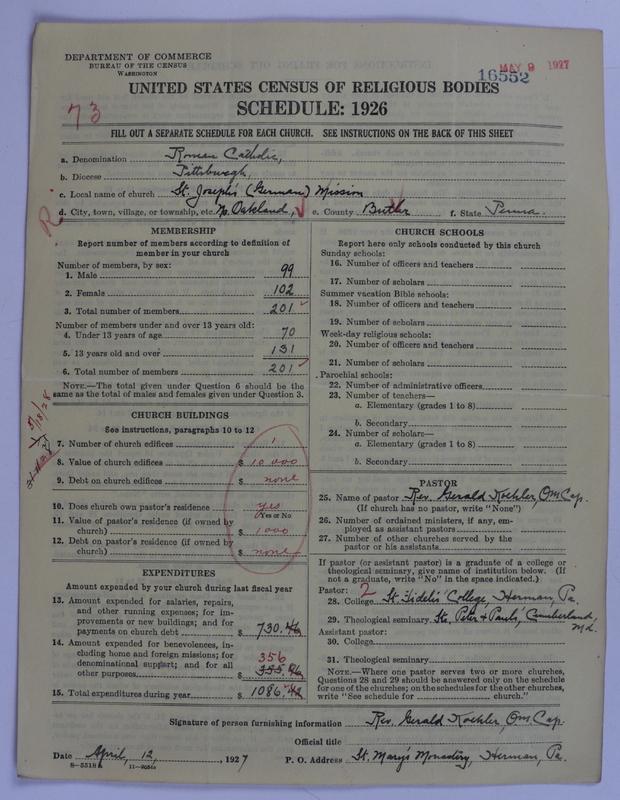 DEPARTMENT OF COMMERCE
BUREAU OF THE CENSUS
WASHINGTON
MAY 9 1927
16552
UNITED STATES CENSUS OF RELIGIOUS BODIES
SCHEDULE: 1926
73
FILL OUT A SEPARATE SCHEDULE FOR EACH CHURCH. SEE INSTRUCTIONS ON THE BACK OF THIS SHEET
a. Denomination Roman Catholic,
b. Diocese Pittsburgh,
c. Local name of church St. Joseph's (German) Mission
d. City, town, village, or township, etc. N. Oakland, e. County Butler f. State Penna.
R.
MEMBERSHIP
Report number of members according to definition of
member in your church
Number of members, by sex:
1. Male 99
2. Female 102
3. Total number of members 201
Number of members under and over 13 years old:
4. Under 13 years of age 70
5. 13 years old and over 131
6. Total number of members 201
NOTE.—The total given under Question 6 should be the
same as the total of males and females given under Question 3.
CHURCH BUILDINGS
See instructions, paragraphs 10 to 12
7. Number of church edifices 1
8. Value of church edifices $ 10 000
9. Debt on church edifices $ none
10. Does church own pastor's residence yes
(Yes or No)
11. Value of pastor's residence (if owned by
church) $ 1000
12. Debt on pastor's residence (if owned by
church) $ none
EXPENDITURES
Amount expended by church during last fiscal year
13. Amount expended for salaries, repairs,
and other running expenses; for im-
provements or new buildings; and for
payments on church debt $ 730.46
14. Amount expended for benevolences, in-
cluding home and foreign missions; for
denominational support; and for all
other purposes $ 355.96
356
15. Total expenditures during year $ 1086.42
CHURCH SCHOOLS
Report here only schools conducted by this church
Sunday schools:
16. Number of officers and teachers
17. Number of scholars
Summer vacation Bible schools:
18. Number of officers and teachers
19. Number of scholars
Week-day religious schools:
20. Number of officers and teachers
21. Number of scholars
Parochial schools:
22. Number of administrative officers
23. Number of teachers—
a. Elementary (grades 1 to 8)
b. Secondary
24. Number of scholars—
a. Elementary (grades 1 to 8)
b. Secondary
PASTOR
25. Name of pastor Rev. Gerald Koehler, OM Cap.
(If church has no pastor, write "None")
26. Number of ordained ministers, if any, em-
ployed as assistant pastors
27. Number of other churches served by the
pastor or his assistants
If pastor (or assistant pastor) is a graduate of a college or
theological seminary, give name of institution below. (If
not a graduate, write "No" in the space indicated.)
Pastor: 2
28. College St. Fidelis' College, Herman, Pa.
29. Theological seminary Sts. Peter & Paul's, Cumberland, Md.
Assistant pastor:
30. College
31. Theological seminary
NOTE.—Where one pastor serves two or more churches,
Questions 28 and 29 should be answered only on the schedule
for one of the churches; on the schedules for the other churches,
write "See schedule for church."
Signature of person furnishing information Rev. Gerald Koehler, OM Cap.
Official title
Date April, 12, 1927 P. O. Address St. Mary's Monastery, Herman, Pa.
8-5518